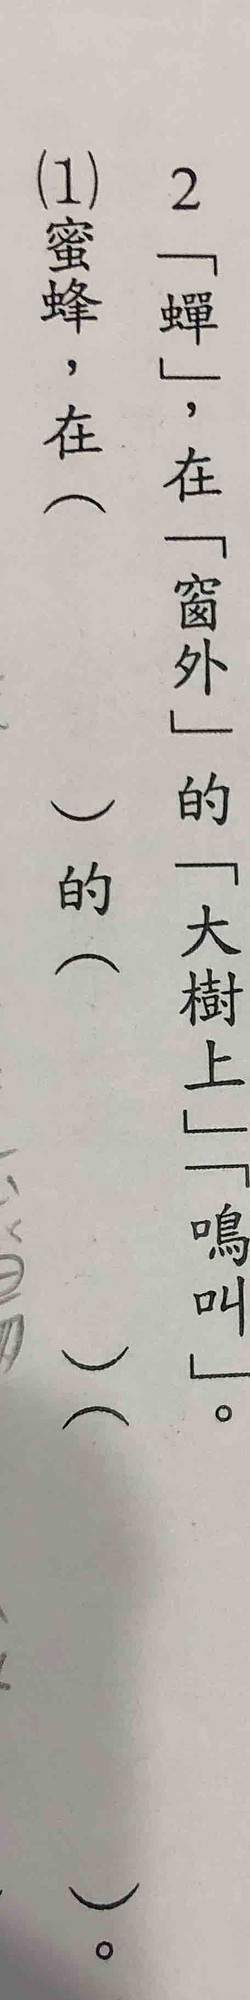 2「蟬」，在「窗外」的「大樹上」「鳴叫」。
⑴蜜蜂，在（　　　）的（　　　）（　　　）。